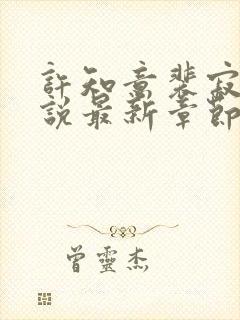 許知意裴寂
說最新章節
曾靈杰